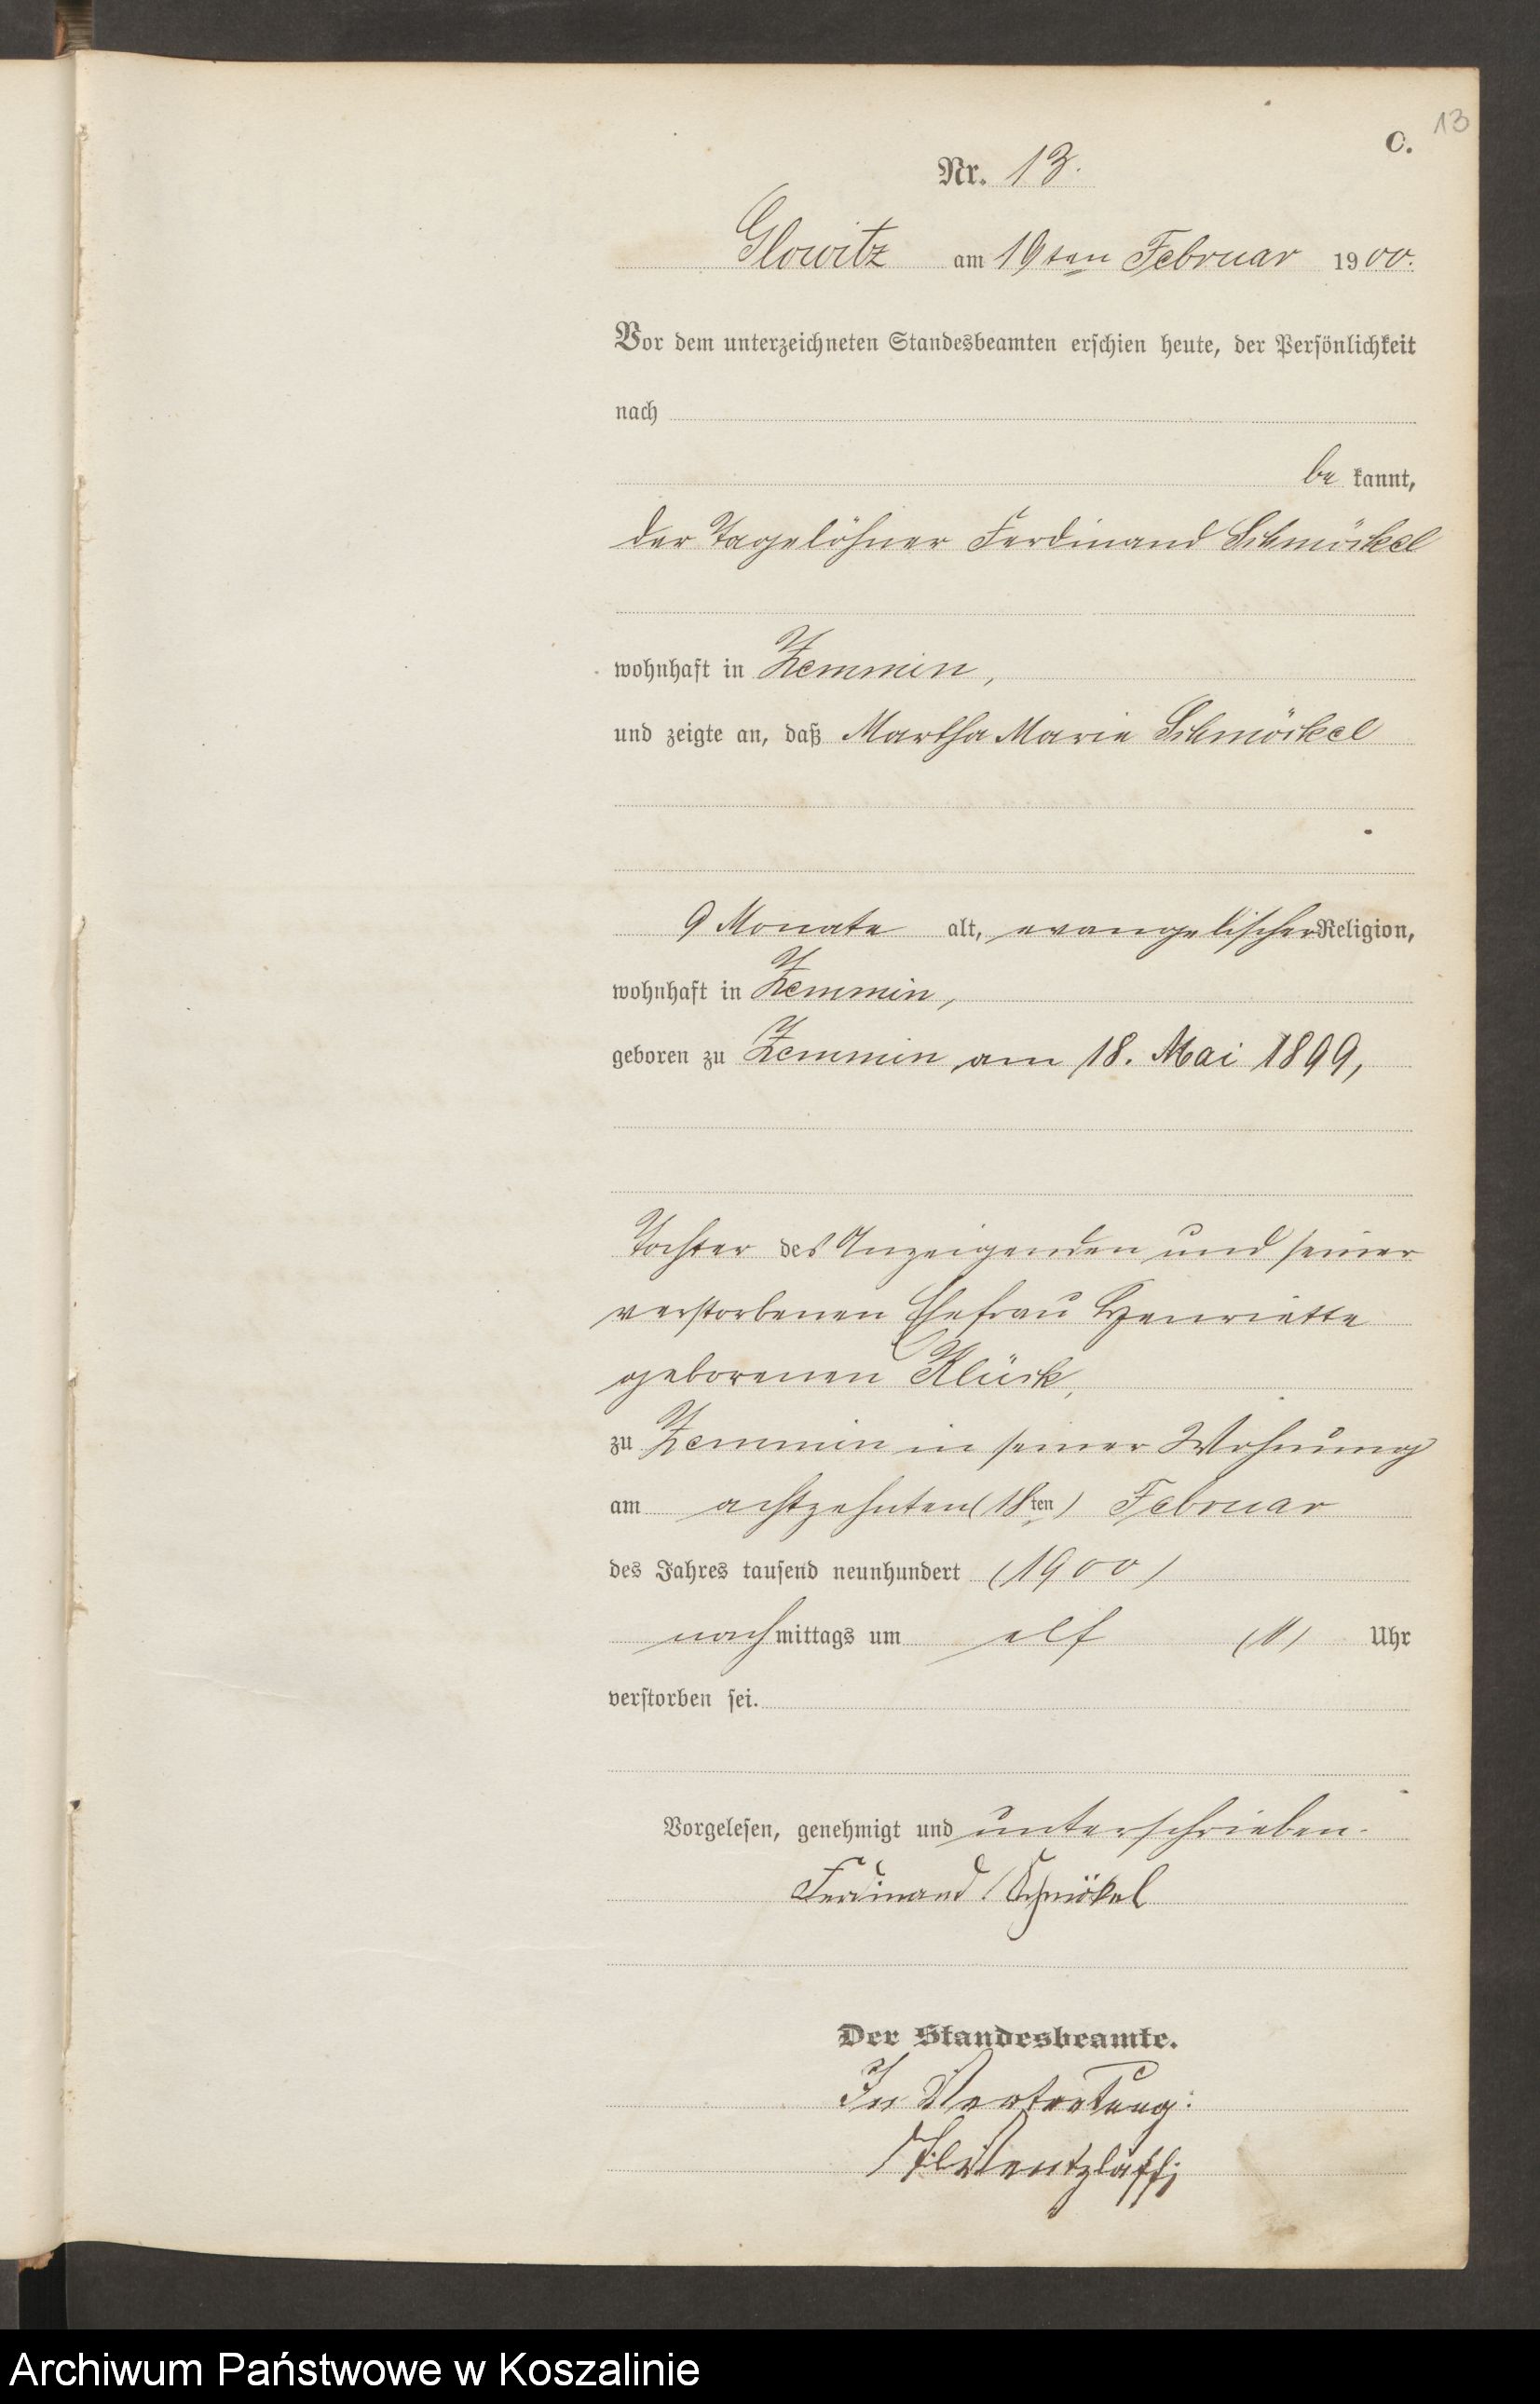 13
C.
Nr. 13.
Glowitz am 19ten Februar 1900.
Vor dem unterzeichneten Standesbeamten erschien heute, der Persönlichkeit
nach
be kannt,
der Tagelöhner Ferdinand Schmöckel
wohnhaft in Zemmin,
und zeigte an, daß Martha Marie Schmöckel
9 Monate alt, evangelischer Religion,
wohnhaft in Zemmin,
geboren zu Zemmin am 18. Mai 1899,
Tochter des Anzeigenden und seiner
verstorbenen Ehefrau Henriette
geborenen Klück,
zu Zemmin in seiner Wohnung
am achtzehnten (18ten) Februar
des Jahres tausend neunhundert (1900)
nachmittags um elf (11) Uhr
verstorben sei.
Vorgelesen, genehmigt und unterschrieben.
Ferdinand Schmökel
Der Standesbeamte.
In Vertretung:
Archiwum Państwowe w Koszalinie